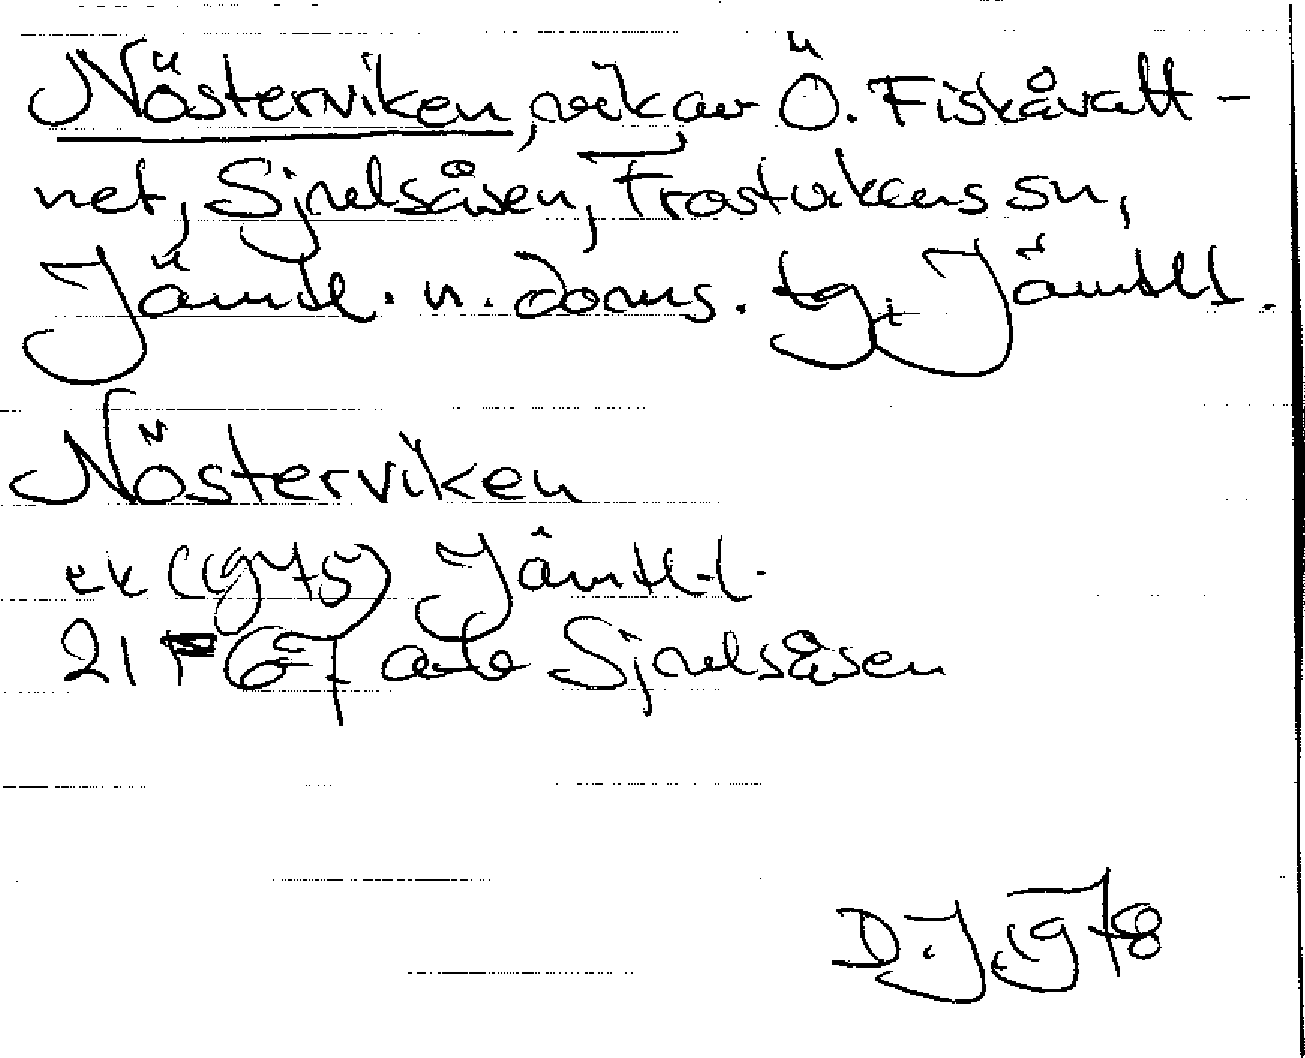 Nösterviken, vik av Ö. Fiskåvatt-
net, Sjnelsåsen, Frostvikens sn,
Jämtl. n. doms. tg, Jämtl l.
Nösterviken
ek (1975) Jämtl. l.
21 F 67 ab Sjnelsåsen
D. J. 1978